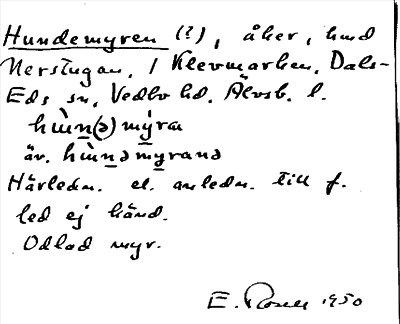 Hundemyren (?), åker, hmd
Nerstugan, 1 Klevmarken, Dals-
Eds sn, Vedbo hd, Älvsb. l.
hùn(ə) mýra
äv. hùnə myrana
Härledn. el. anledn. till f.
led ej känd.
Odlad myr.
E. Rosell 1950